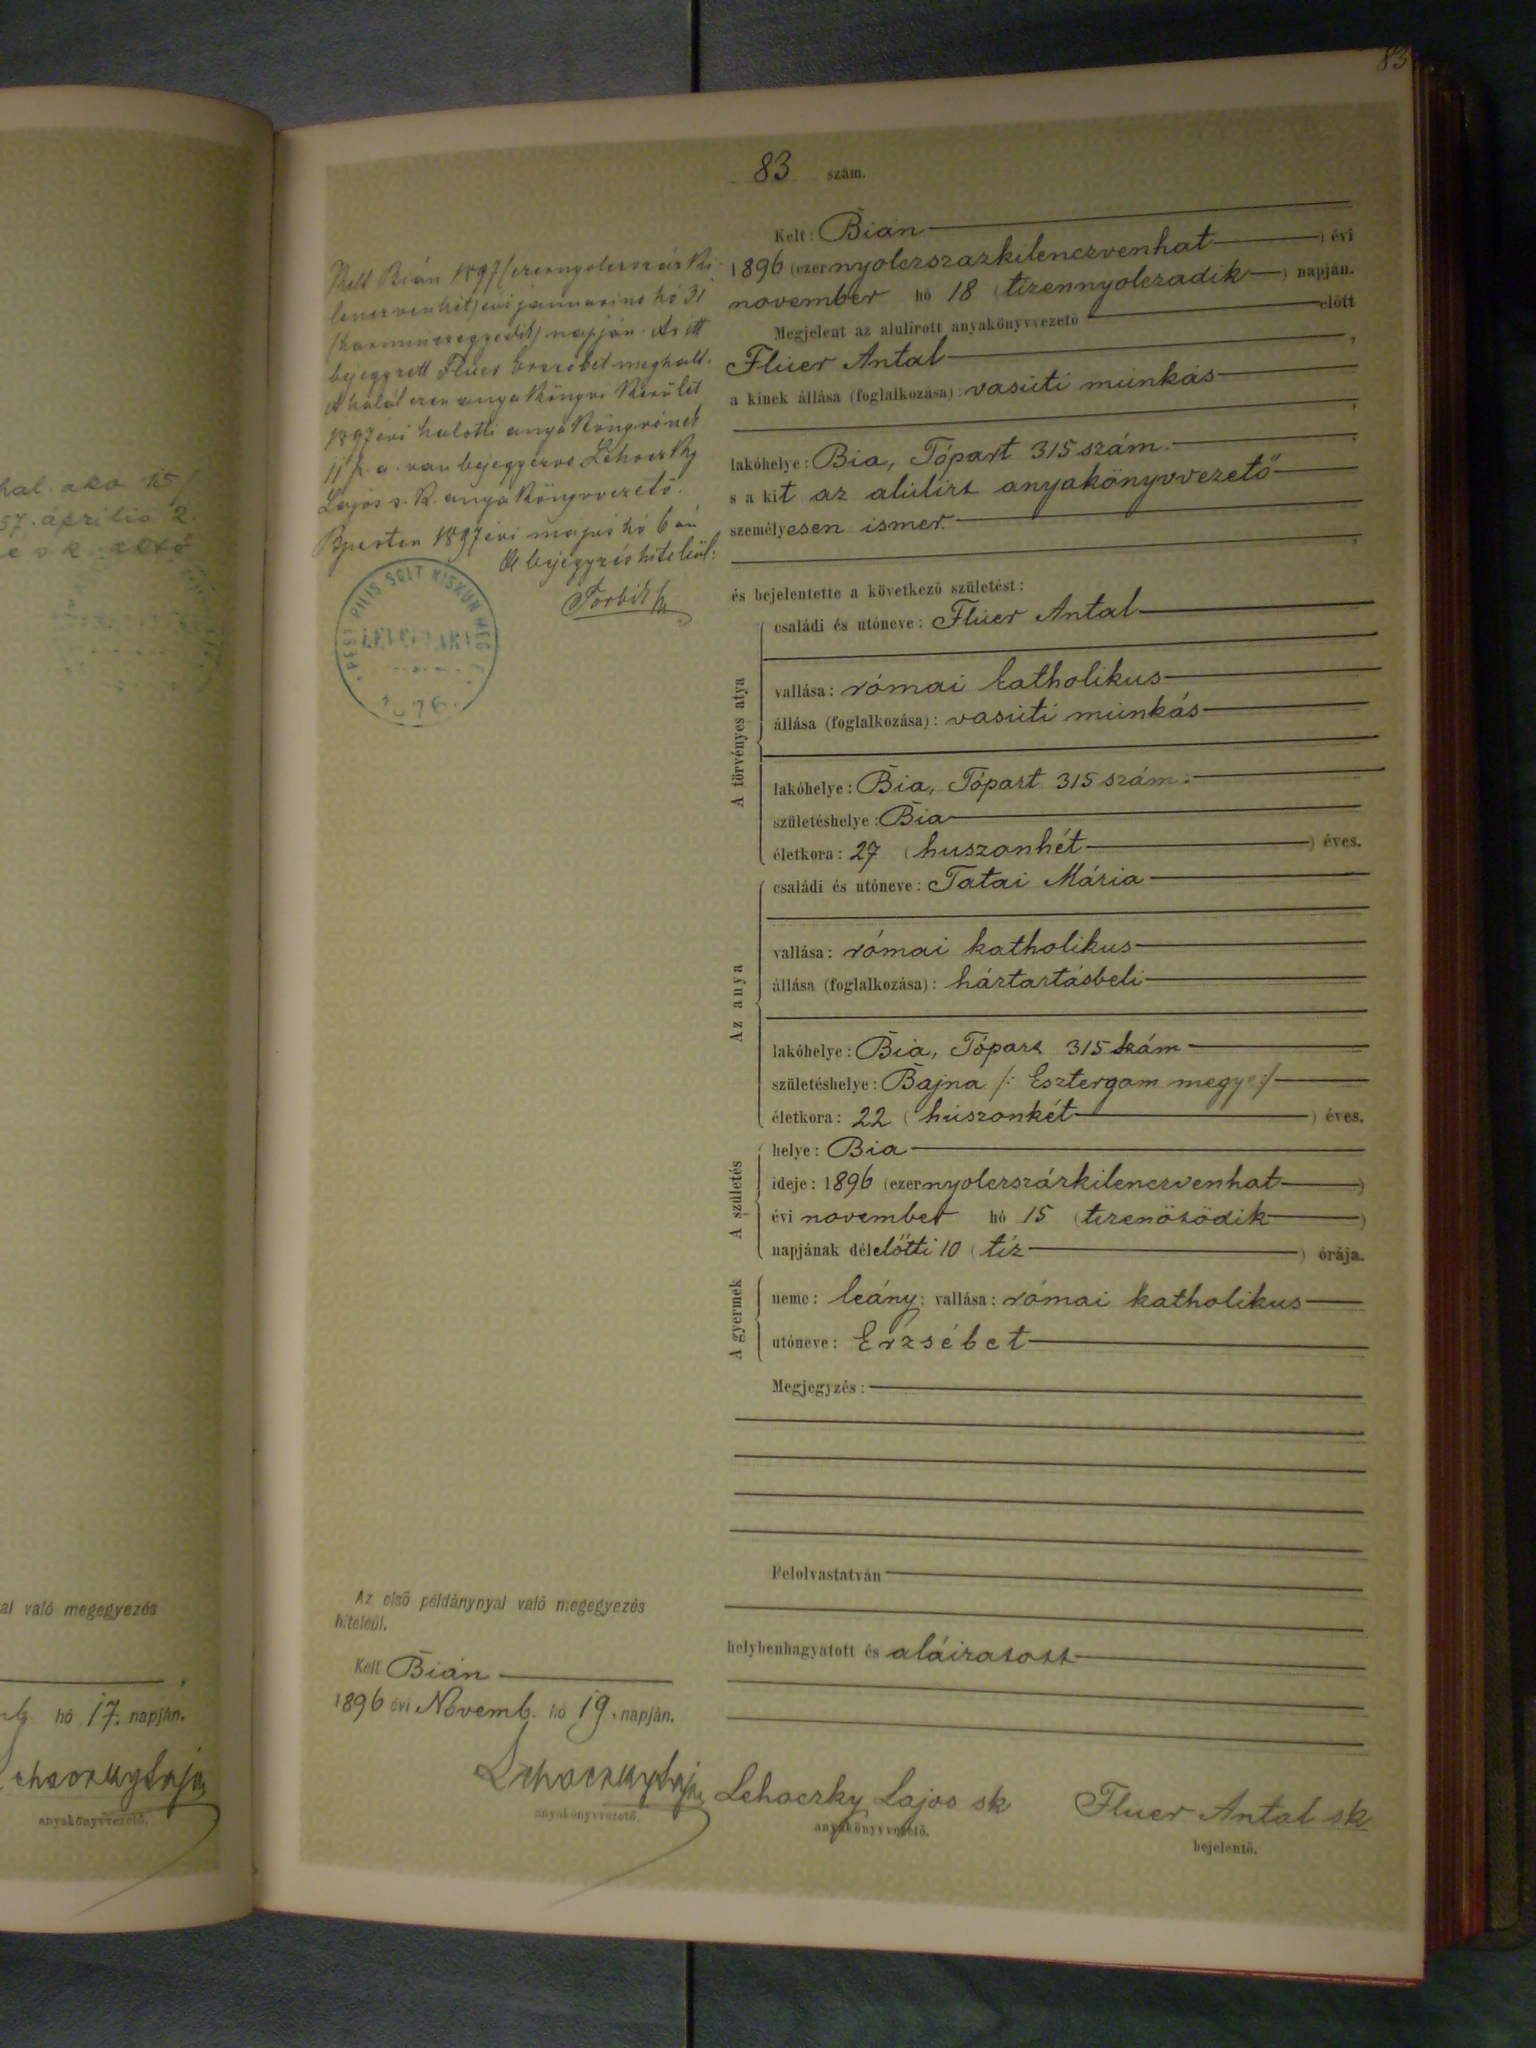 83
83 szám.
Kelt: Bián
1896 (ezernyolczszázkilenczvenhat) évi
november hó 18 (tizennyolczadik) napján.
Megjelent az alulirott anyakönyvvezető előtt
Flúer Antal,
a kinek állása (foglalkozása): vasúti munkás
lakóhelye: Bia, Tópart 315 szám.
s a kit az alulirt anyakönyvvezető
személyesen ismer.
és bejelentette a következő születést:
A törvényes atya
családi és utóneve: Flúer Antal
vallása: római katholikus
állása (foglalkozása): vasúti munkás
lakóhelye: Bia, Tópart 315 szám.
születéshelye: Bia
életkora: 27 (huszonhét) éves.
Az anya
családi és utóneve: Tatai Mária
vallása: római katholikus
állása (foglalkozása): háztartásbeli
lakóhelye: Bia, Tópart 315 szám
születéshelye: Bajna /: Esztergom megye :/
életkora: 22 (huszonkét) éves.
A születés
helye: Bia
ideje: 1896 (ezernyolczszázkilenczvenhat)
évi november hó 15 (tizenötödik)
napjának délelőtti 10 (tíz) órája.
A gyermek
neme: leány; vallása: római katholikus
utóneve: Erzsébet
Megjegyzés:
Felolvastatván
helybenhagyatott és aláiratott
Lehoczky Lajos sk
anyakönyvvezető.
Fluer Antal sk
bejelentő.
Kelt Bián 1897 (ezernyolczszázki
lenczvenhét) évi januárius hó 31
(harminczegyedik) napján. Az itt
bejegyzett Flúer Erzsébet meghalt.
A halál ezen anyakönyvi kerület
1897 évi halotti anyakönyvének
11 f. a. van bejegyezve Lehoczky
Lajos s. k. anyakönyvvezető.
Bpesten 1897 évi május hó 6 án
A bejegyzés hiteléül:
PEST PILIS SOLT KISKUN MEGYE
LEVÉLTÁRA
Az első példánynyal való megegyezés
hiteléül.
Kelt Bián
1896 évi Novemb. hó 19. napján.
Lehoczky Lajos
anyakönyvvezető.
hal. aka 15/
57. április 2.
al való megegyezés
hó 17. napján.
ehoczky Lajos
anyakönyvvezető.